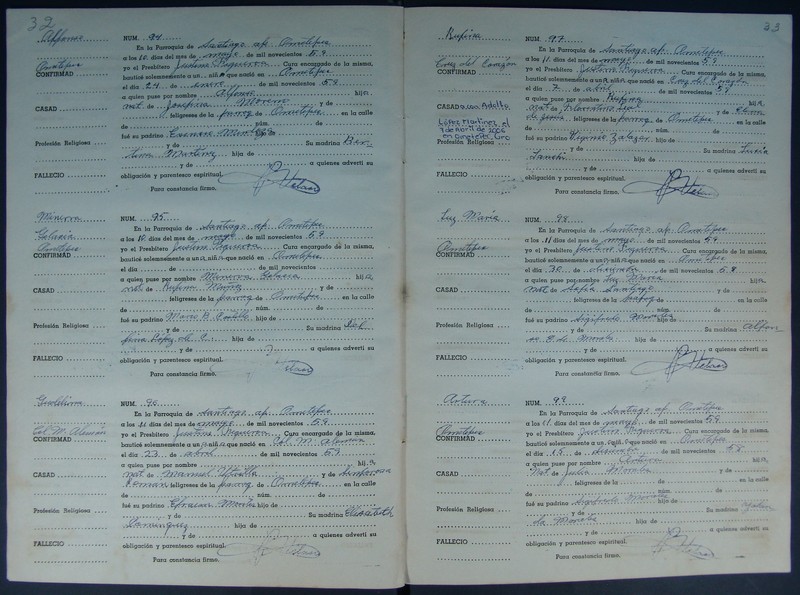 32
Alfonso
NUM. 94
En la Parroquia de Santiago ap. Ometepec
a los 10 días del mes de mayo de mil novecientos 59
Ometepec
yo el Presbítero Justino Figueroa Cura encargado de la misma,
CONFIRMAD
bauticé solemnemente a un niño que nació en Ometepec
el día 24 de enero de mil novecientos 59
a quien puse por nombre Alfonso hijo
CASAD
nat. de Josefina Moreno y de
feligreses de la parroq de Ometepec en la calle
de núm. de
fué su padrino hija de
Profesión Religiosa
y de Su madrina
Martínez hija de
y de a quienes advertí su
FALLECIO
obligación y parentesco espiritual.
Para constancia firmo.
Minerva
NUM. 95
Galacia
En la Parroquia de Santiago ap. Ometepec
a los 10 días del mes de mayo de mil novecientos 59
Ometepec
yo el Presbítero Justino Figueroa Cura encargado de la misma,
CONFIRMAD
bauticé solemnemente a un niña que nació en Ometepec
el día de de mil novecientos
a quien puse por nombre Minerva Galacia hija
CASAD
nat. de Rufina y de
feligreses de la parroq de Ometepec en la calle
de núm. de
fué su padrino Mario B. hijo de
Profesión Religiosa
y de Su madrina Del
fina López de C. hija de
y de a quienes advertí su
FALLECIO
obligación y parentesco espiritual.
Para constancia firmo.
NUM. 96
En la Parroquia de Santiago ap. Ometepec
Col. M. Alemán
a los 11 días del mes de mayo de mil novecientos 59
yo el Presbítero Justino Figueroa Cura encargado de la misma,
CONFIRMAD
bauticé solemnemente a un niña que nació en Col. M. Alemán
el día 23 de abril de mil novecientos 59
a quien puse por nombre hija
CASAD
nat. de Manuel y de
Román feligreses de la parroq de Ometepec en la calle
de núm. de
fué su padrino Efraín Montes hijo de
Profesión Religiosa
y de Su madrina Elisabeth
Domínguez hija de
y de a quienes advertí su
FALLECIO
obligación y parentesco espiritual.
Para constancia firmo.
33
Rufina
NUM. 97
En la Parroquia de Santiago ap. Ometepec
Cruz del Corazón
a los 11 días del mes de mayo de mil novecientos 59
yo el Presbítero Justino Figueroa Cura encargado de la misma,
CONFIRMAD
bauticé solemnemente a un niña que nació en Cruz del Corazón
el día 7 de abril de mil novecientos 59
a quien puse por nombre Rufina hija
CASAD a con Adolfo
López Martínez el
7 de Abril de 2006
nat. de y de Elena
de Jesús feligreses de la parroq de Ometepec en la calle
de núm. de
fué su padrino Vicente Salazar hijo de
Profesión Religiosa
y de Su madrina Lucía
hija de
y de a quienes advertí su
FALLECIO
obligación y parentesco espiritual.
Para constancia firmo.
Luz María
NUM. 98
En la Parroquia de Santiago ap. Ometepec
a los 11 días del mes de mayo de mil novecientos 59
Ometepec
yo el Presbítero Justino Figueroa Cura encargado de la misma,
CONFIRMAD
bauticé solemnemente a un niña que nació en Ometepec
el día 30 de de mil novecientos 58
a quien puse por nombre Luz María hija
CASAD
nat. de Sofía Santiago y de
feligreses de la parroq de en la calle
de núm. de
fué su padrino Sigifredo Morales hijo de
Profesión Religiosa
y de Su madrina Alfon
sa C. de Morales hija de
y de a quienes advertí su
FALLECIO
obligación y parentesco espiritual.
Para constancia firmo.
Arturo
NUM. 99
En la Parroquia de Santiago ap. Ometepec
a los 11 días del mes de mayo de mil novecientos 59
Ometepec
yo el Presbítero Justino Figueroa Cura encargado de la misma,
CONFIRMAD
bauticé solemnemente a un niño que nació en Ometepec
el día 15 de de mil novecientos 58
a quien puse por nombre Arturo hijo
CASAD
nat. de Julia Morales y de
feligreses de la de en la calle
de núm. de
fué su padrino Sigifredo Morales hijo de
Profesión Religiosa
y de Su madrina
Morales hija de
y de a quienes advertí su
FALLECIO
obligación y parentesco espiritual.
Para constancia firmo.